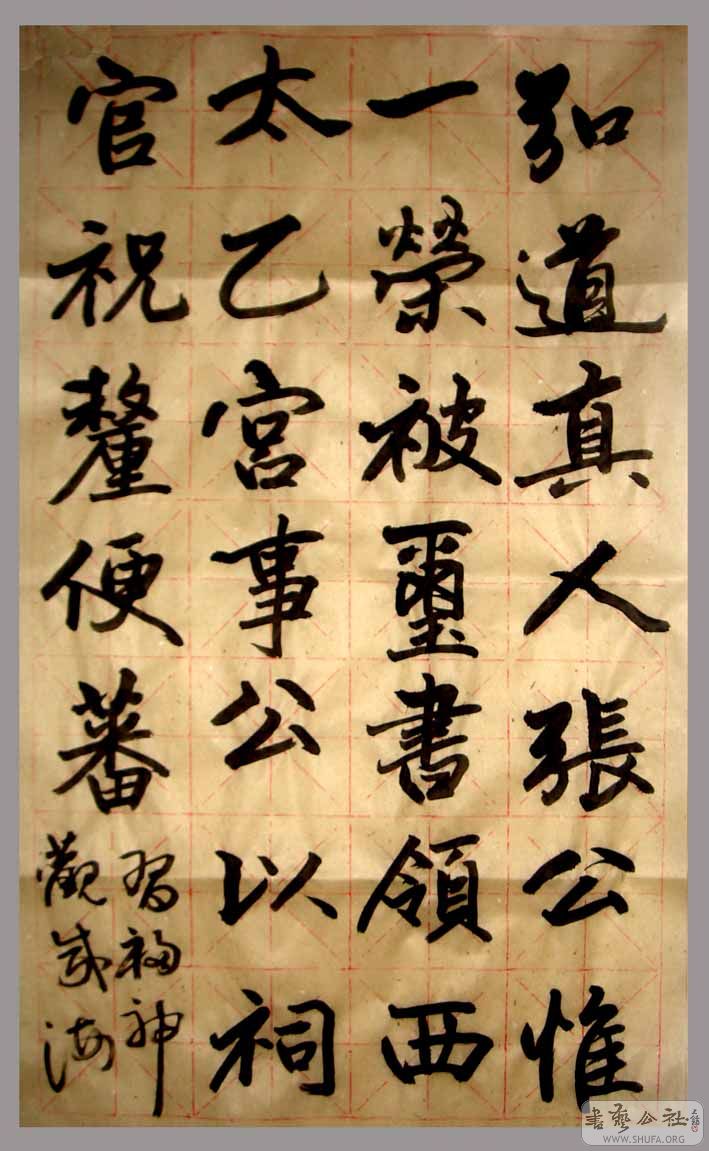 弘道真人張公惟
一榮被璽書領西
太乙宮事公以祠
官祝釐便蕃
習福神
觀
書藝公社
WWW.SHUFA.ORG